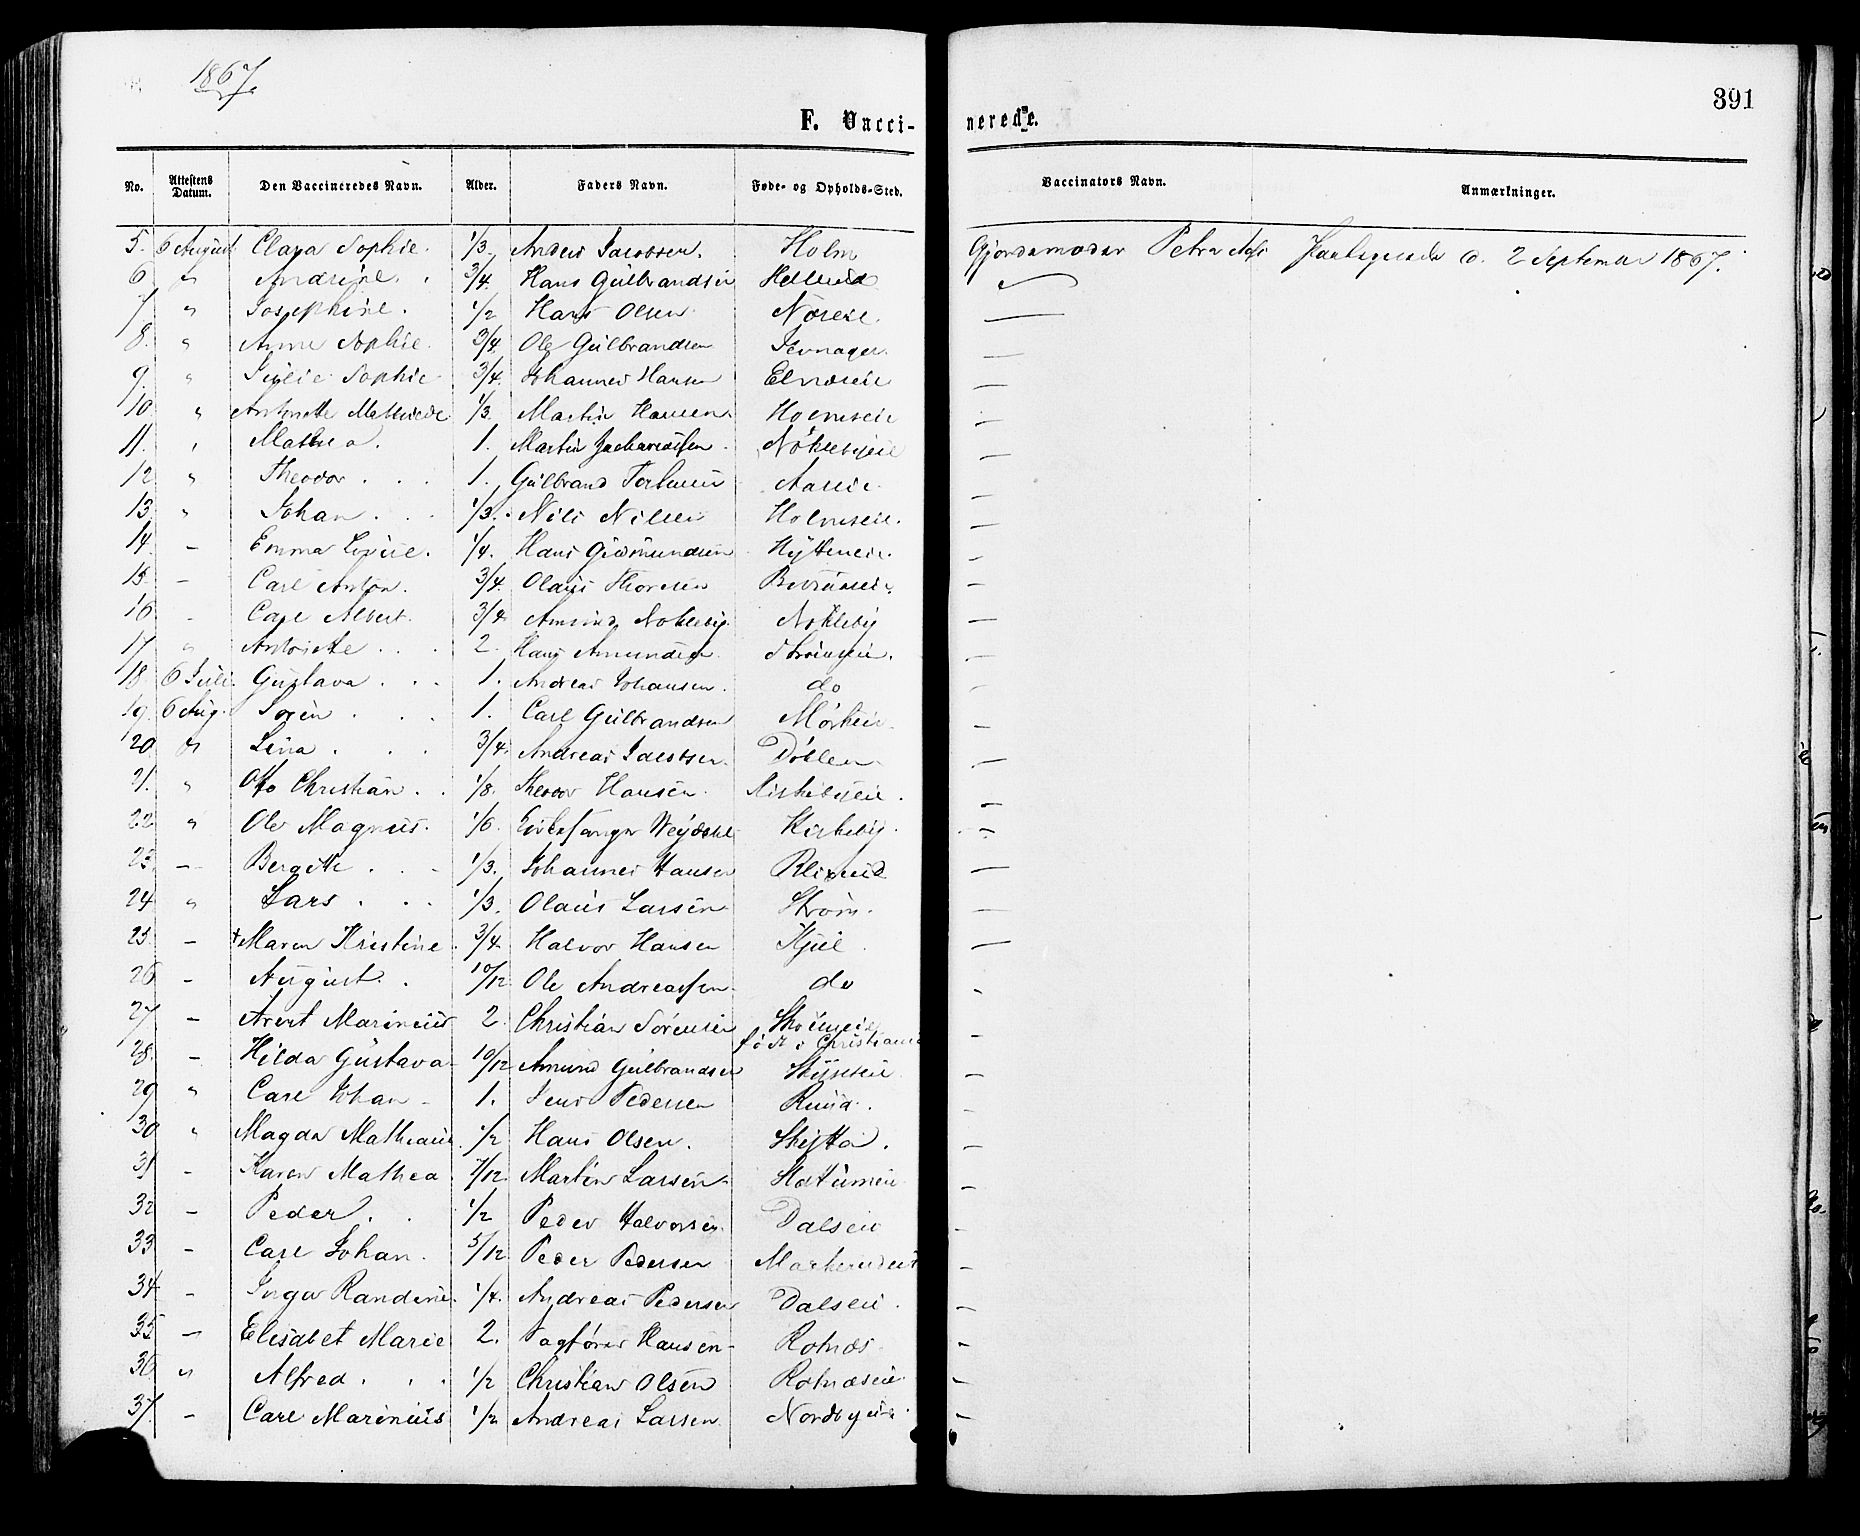 1867.
391
F. Vacci-
nerede.
No. Attestens Datum. Den Vaccineredes Navn. Alder. Faders Navn. Føde- og Opholds-Sted. Vaccinators Navn. Anmærkninger.
5. 6 August Clara Sophie. 1/3. Anders Jacobsen. Holm Gjordemoder Petra 2 September 1867.
6 " Andrine. 3/4. Hans Gulbrandsen Hellerud
7 " Josephine. 1/2 Hans Olsen Nøreie —
8. " Anne Sophie. 3/4. Ole Gulbrandsen Jevnager. —
9. " Julie Sophie 3/4. Johannes Hansen —
10. " Antonette Mathilde 1/3. Martin Hansen Holmseie —
11. " Mathea. 1. Martin Zachariassen. Nøklebyeie —
12 " Theodor . . . 1. Gulbrand Aaseie —
13. " Johan . . . 1/3. Nils Nilsen Holmseie. —
14. – Emma Lovise. 1/4. Hans Gudmundsen Hytteneie. —
15. – Carl Anton. 3/4. Olaus Thoresen —
16 – Carl Albert. 3/4 Amund Nokleby. Nokleby —
17 " Antoinette . . . 2. Hans Amundsen. Strømseie. —
18 6 Juli. Gustava . . . 1. Andreas Johansen. do —
19. 6 Aug. Søren . . . 1. Carl Gulbrandsen Mørkeie. —
20. " Lina . . . 3/4. Andreas Jacobsen. Døhlen —
21. " Otto Christian . . 1/8. Theodor Hansen. —
22 " Ole Magnus. 1/6. Kirkesanger Weydahl Kirkeby. —
23 – Bergitte . . . 1/3. Johannes Hansen —
24 " Lars . . . 1/3. Olaus Larsen Strøm. —
25. – † Maren Kristine. 3/4. Halvor Hansen Kjul. —
26 – August. . 10/12 Ole Andreassen. do —
27 – Marinius 2. Christian Sørensen Strømseie —
født i Christiania
28. – Hilda Gustava 10/12 Amund Gulbrandsen —
29 " Carl Johan – 1. Jens Pedersen Ruud. —
30 " Magda 1/2 Hans Olsen. Skytta. —
31 – Karen Mathea 7/12 Martin Larsen Slattumeie —
32 – Peder. . 1/2 Peder Halvorsen. Dalseie —
33 – Carl Johan. 5/12 Peder Pedersen Markerudeie —
34. – Inga Randine. 1/4. Andreas Pedersen Dalseie. —
35 – Elisabet Marie 2. Fogfører Hansen – Rotnæs —
36 " Alfred . . . 1/2 Christian Olsen Rotnæseie —
37. – Carl Marinius 1/2 Andreas Larsen Nordbyeie. —